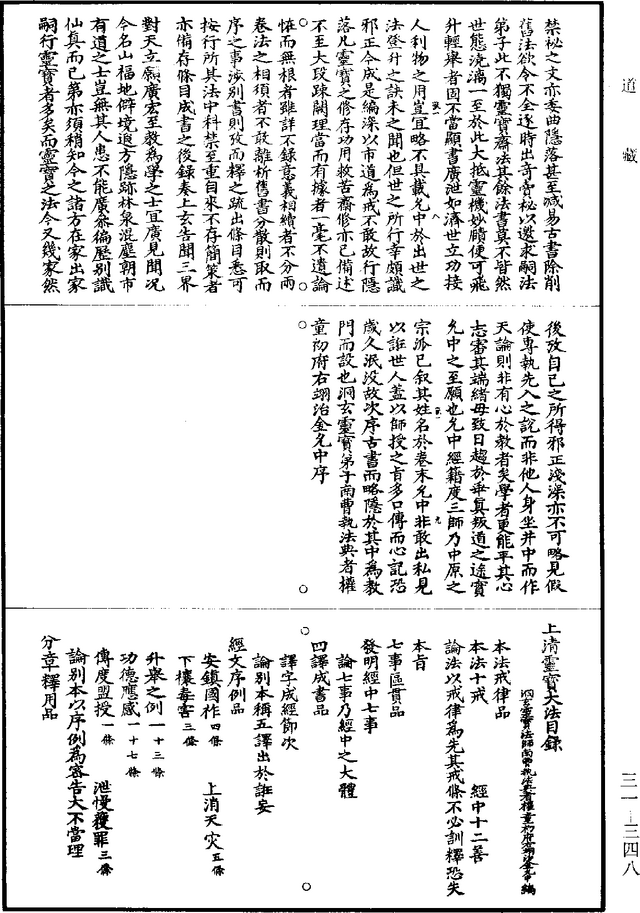 道藏
禁祕之文亦委曲隱落甚至减易古書除削
舊法欲令不全逐時出奇賣祕以邀求嗣法
弟子此不獨靈寶齋法其餘法書莫不皆然
世態澆漓一至於此大抵靈機妙賾便可飛
升輕舉者固不當顯書廣泄如濟世立功接
人利物之用豈宜略不具載允中於出世之
法登升之訣未之聞也但世之所行幸頗識
邪正今成是編深以市道為戒不敢故行隱
落凡靈寶之修存功用救苦齋修亦已備述
不至大段踈闕理當而有據者一毫不遺論
恠而無根者雖詳不錄意義相續者不分兩
卷法之相須者不敢離析舊書分散則取而
序之事涉別書則攷而釋之疏出條目悉可
按行所其法中科禁至重自來不存簡策者
亦備存條目成書之後錄奏上玄告聞三界
對天立願廣宏至教為學之士宜廣見聞況
今名山福地僻境遐方隱跡林泉混塵朝市
有道之士豈無其人患不能廣叅徧歷別識
仙真而已第亦須稍知今之諸方在家出家
嗣行靈寶者多矣而靈寶之法今又幾家然
後攷自己之所得邪正淺深亦不可略見假
使專執先入之說而非他人身坐井中而作
天論則非有心於教者矣學者更能平其心
志審其端緒毋致日趨於垂真叛道之途實
允中之至願也允中經籍度三師乃中原之
宗派已叙其姓名於卷末允中非敢出私見
以誑世人蓋以師授之旨多口傳而心記恐
歲久泯沒故次序古書而略隱於其中為教
門而設也洞玄靈寶弟子南曹執法典者權
童初府右翊治金允中序
上清靈寶大法目錄
洞玄靈寶法師南曹執法典者權童初府右翊治金允中編
本法戒律品
本法十戒　經中十二善
論法以戒律為先其戒條不必訓釋恐失
本旨
七事區貫品
發明經中七事
論七事乃經中之大體
四譯成書品
譯字成經節次
論別本稱五譯出於誑妄
經文序例品
安鎮國祚四條　上消天灾五條
下禳毒害三條
升舉之例一十三條
功德應感一十七條
傳度盟授一條　泄慢獲罪三條
論別本以序例為密告大不當理
分章釋用品
三一—三四八